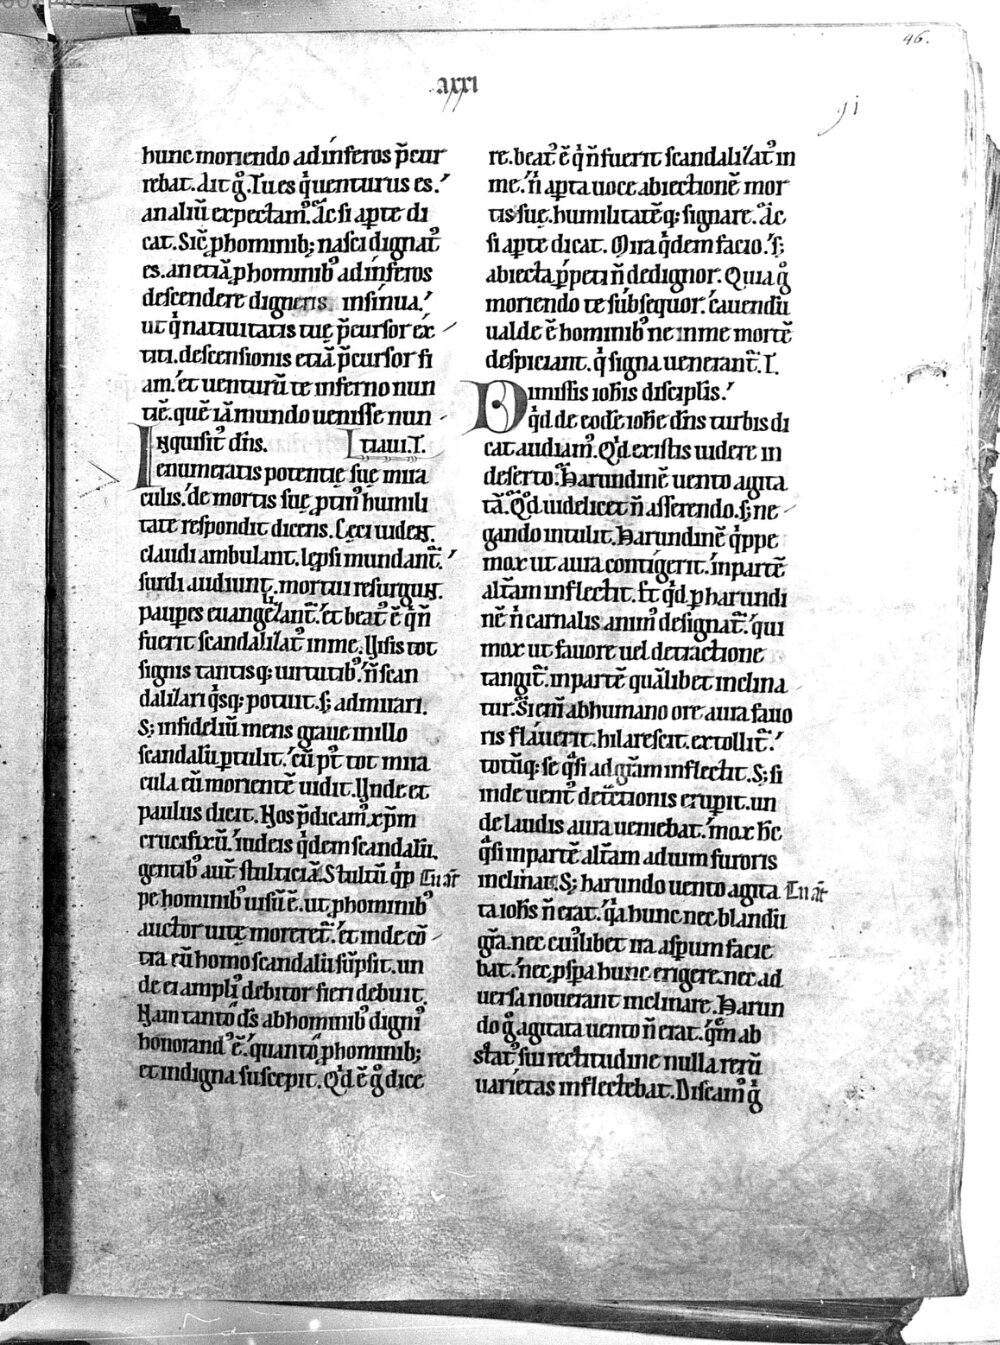 46.
axxi
91
hunc moriendo ad inferos p̄cur
rebat. dic̄ g̊. Tu es q̍ uenturus es.
an aliū expectam᷒. Ac̄ si ap̄te di
cat. Sic̄ ꝓ hominib; nasci dignat᷒
es. an etiā ꝓ hominib᷒ ad inferos
descendere digneris insinua.
ut q̍ natiuitatis tuę p̄cursor ex
titi. descensionis etiā p̄cursor fi
am. et uenturū te inferno nun
tiē. quē iā mundo uenisse nun
Inquisit᷒ dn̄s. tiaui. I.
enumeratis potentię suę mira
culis. de mortis suę ꝓtin᷒ humili
tate respondit dicens. Cęci uident.
claudi ambulant. lep̄si mundant᷑.
surdi audiunt. mortui resurgunt.
paup̄es euangelizant᷑. et beat᷒ ē q̍ n̄
fuerit scandalizat᷒ in me. Visis tot
signis tantisq; uirtutib᷒. n̄ scan
dalizari q̍sq; potuit. s; admirari.
S; infideliū mens graue in illo
scandalū ꝑtulit. cū p᷒t tot mira
cula eū morientē uidit. Vnde et
paulus dicit. Nos p̄dicam᷒ xp̄m
crucifixū. iudeis q̍dem scandalū.
gentib᷒ aut̄ stulticiā. Stultū q̍p
pe hominib᷒ uisū ē. ut ꝓ hominib᷒
auctor uitę moreret᷑. et inde cō
tra eū homo scandalū sūpsit. un
de ei ampli᷒ debitor fieri debuit.
Nam tanto ds̄ ab hominib᷒ digni᷒
honorand᷒ ē. quanto ꝓ hominib;
et indigna suscepit. Qd̄ ē g̊ dice
re. beat᷒ ē q̍ n̄ fuerit scandalizat᷒ in
me. n̍ apta uoce abiectionē mor
tis suę. humilitatēq; signare. Ac̄
si apte dicat. Mira q̍dem facio. s;
abiecta ꝑpeti n̄ dedignor. Quia g̊
moriendo te subsequor. cauendū
ualde ē hominib᷒ ne in me mortē
despiciant. q̍ signa uenerant᷑. I.
Dimissis iohis discipłis.
qd̄ de eodē iohe dn̄s turbis di
cat audiam᷒. Qd̄ existis uidere in
deserto. Harundinē uento agita
tā. Qd̄ uidelicet n̄ asserendo. s; ne
gando intulit. Harundinē q̍ppe
mox ut aura contigerit. in partē
altam inflectit. Et qd̄ ꝑ harundi
nē n̍ carnalis anim᷒ designat᷑. qui
mox ut fauore uel detractione
tangit᷑. in partē quālibet inclina
tur. Si enī ab humano ore aura fauo
ris flauerit. hilarescit. extollit᷑.
totūq; se q̍si ad gr̄am inflectit. S; si
inde uent᷒ detractionis eruperit. un
de laudis aura ueniebat. mox hc̄
q̍si in partē altam ad uim furoris
inclinat. S; harundo uento agita
ta iohis n̄ erat. q̍a hunc nec blandū
gr̄a. nec cui᷒libet ira aspum facie
bat. nec ꝓspa hunc erigere. nec ad
uersa nouerant inclinare. Harun
do g̊ agitata uento n̄ erat. q̍m ab
stat᷒ sui rectitudine nulla rerū
uarietas inflectebat. Discam᷒ g̊